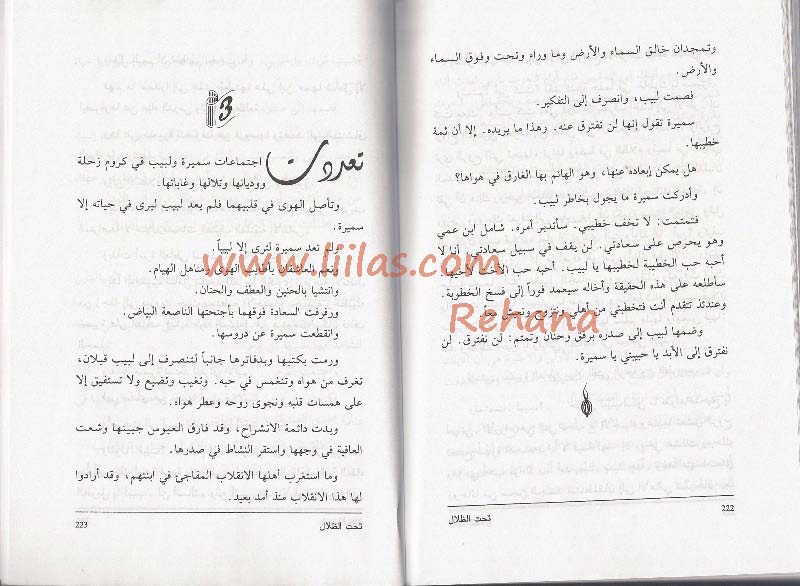 وتمجدان خالق السماء والأرض وما وراء وتحت وفوق السماء
والأرض.
فصمت لبيب، وانصرف إلى التفكير.
سميرة تقول إنها لن تفترق عنه. وهذا ما يريده. إلا أن ثمة
خطيبها.
هل يمكن إبعاده عنها، وهو الهائم بها الغارق في هواها؟
وأدركت سميرة ما يجول بخاطر لبيب.
فتمتمت: لا تخف خطيبي. سأتدبر أمره. شامل ابن عمي
وهو يحرص على سعادتي. لن يقف في سبيل سعادتي. أنا لا
أحبه حب الخطيبة لخطيبها يا لبيب. أحبه حب الأخت لأخيها.
سأطلعه على هذه الحقيقة وأخاله سيعمد فوراً إلى فسخ الخطوبة.
وعندئذ تتقدم أنت فتخطبني من أهلي ونتزوج ونعيش معاً.
وضمها لبيب إلى صدره برفق وحنان وتمتم: لن نفترق. لن
نفترق إلى الأبد يا حبيبتي يا سميرة.
222
تحت الظلال
3
تعددت اجتماعات سميرة ولبيب في كروم زحلة
ووديانها وتلالها وغاباتها.
وتأصل الهوى في قلبيهما فلم يعد لبيب ليرى في حياته إلا
سميرة.
ولم تعد سميرة لترى إلا لبيباً.
ونعم العاشقان بأطايب الهوى ومناهل الهيام.
وانتشيا بالحنين والعطف والحنان.
ورفرفت السعادة فوقهما بأجنحتها الناصعة البياض.
وانقطعت سميرة عن دروسها.
ورمت بكتبها وبدفاترها جانباً لتنصرف إلى لبيب قيلان،
تغرف من هواه وتنغمس في حبه. وتغيب وتضيع ولا تستفيق إلا
على همسات قلبه ونجوى روحه وعطر هواه.
وبدت دائمة الانشراح، وقد فارق العبوس جبينها وشعت
العافية في وجهها واستقر النشاط في صدرها.
وما استغرب أهلها الانقلاب المفاجئ في ابنتهم، وقد أرادوا
لها هذا الانقلاب منذ أمد بعيد.
تحت الظلال
223
www.liilas.com
Rehana